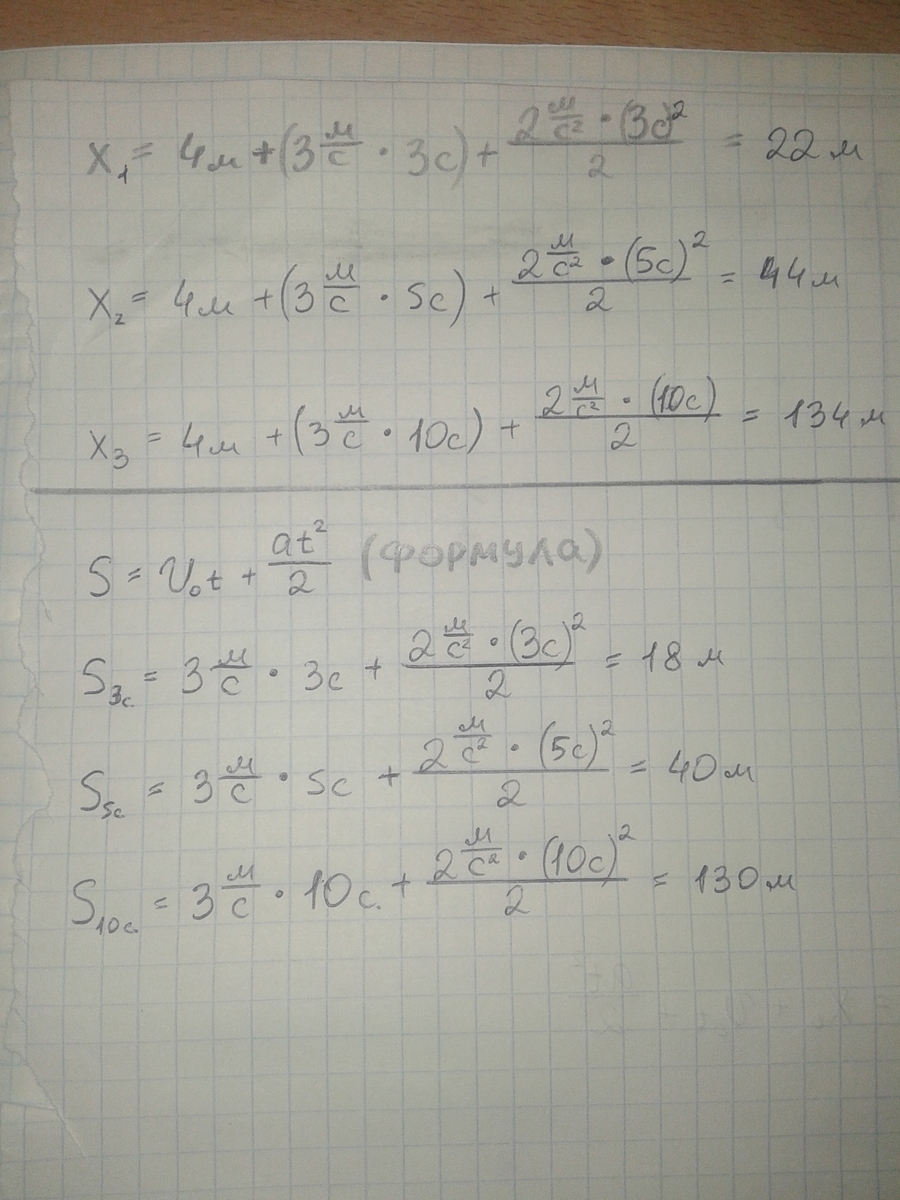 x₁ = 4м + (3 м/с · 3с) + (2 м/с² · (3с)²)/2 = 22 м
x₂ = 4м + (3 м/с · 5с) + (2 м/с² · (5с)²)/2 = 44 м
x₃ = 4м + (3 м/с · 10с) + (2 м/с² · (10с))/2 = 134 м
S = V₀t + at²/2 (формула)
S₃с. = 3 м/с · 3с + (2 м/с² · (3с)²)/2 = 18 м
S₅с = 3 м/с · 5с + (2 м/с² · (5с)²)/2 = 40 м
S₁₀с. = 3 м/с · 10с. + (2 м/с² · (10с)²)/2 = 130 м